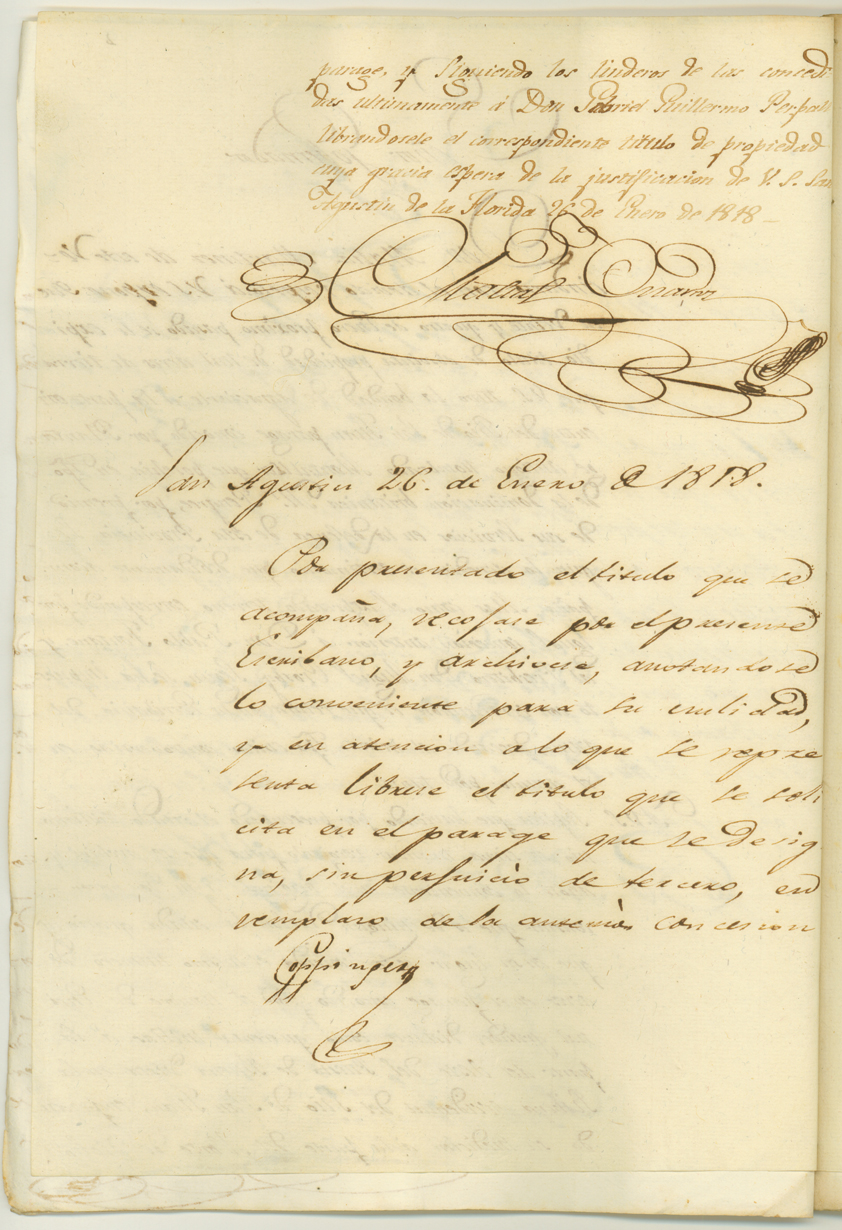 parage, y siguiendo los linderos de las concedi
das ultimamente á Don Gabriel Guillermo Perpall
librandosele el correspondiente titulo de propiedad
cuya gracia espera de la justificacion de V. S. San
Agustin de la Florida 26 de Enero de 1818
San Agustin 26. de Enero de 1818.
Por presentado el titulo que se
acompaña, recojase por el presente
Escribano, y archivese, anotandose
lo conveniente para su nulidad,
y en atencion a lo que se repre
senta librese el titulo que se soli
cita en el parage que se desig
na, sin perjuicio de tercero, en
remplazo de la anterior concesion
Coppinger